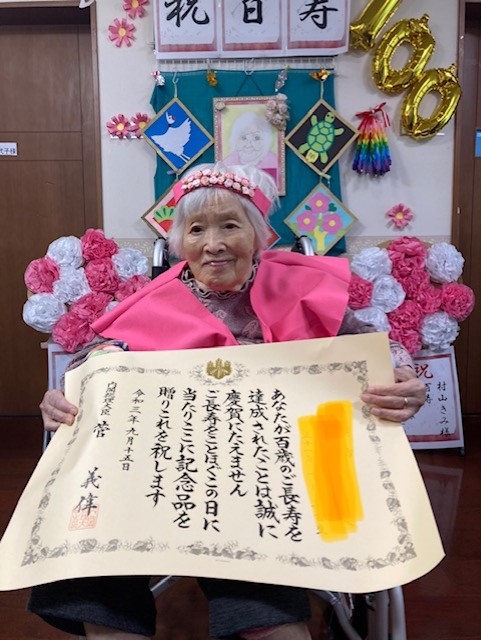 祝百寿
100
あなたが百歳のご長寿を
達成されたことは誠に
慶賀にたえません
ご長寿をことほぐこの日に
当たりここに記念品を
贈りこれを祝します
令和三年九月十五日
内閣総理大臣 菅 義偉
祝
村山きみ様
百寿